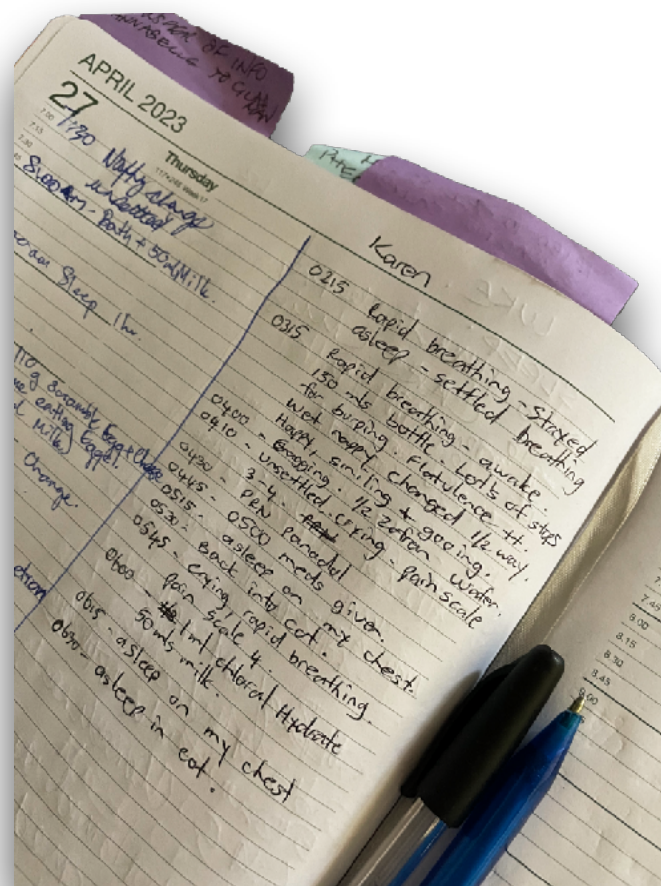 OF INFO
APRIL 2023
27
Thursday
7.00
7.15
7.30
7:30 Nappy change
unsettled
8:00am - Bath + 50ml Milk.
Sleep 1hr.
Scramble Egg + Cheese
eating bagel.
Milk
Change.
Karen
0215 Rapid breathing - Stayed
asleep - settled breathing
0315 Rapid breathing - awake.
150 mls bottle - Lots of stops
for burping. Flatulence ++.
Wet nappy changed 1/2 way.
Happy, smiling & gooing.
0400 - Gagging. 1/2 Zofran Wafer.
0410 - unsettled, crying - pain scale
3-4.
0430 - PRN Panadol
0445 - 0500 meds given.
0515 - asleep on my chest.
0530 - Back into cot.
0545 - crying, rapid breathing.
Pain Scale 4.
0600 - 1ml Chloral Hydrate
50mls milk.
0615 - asleep on my chest
0630 - asleep in cot.
7.45
8.00
8.15
8.30
8.45
9.00